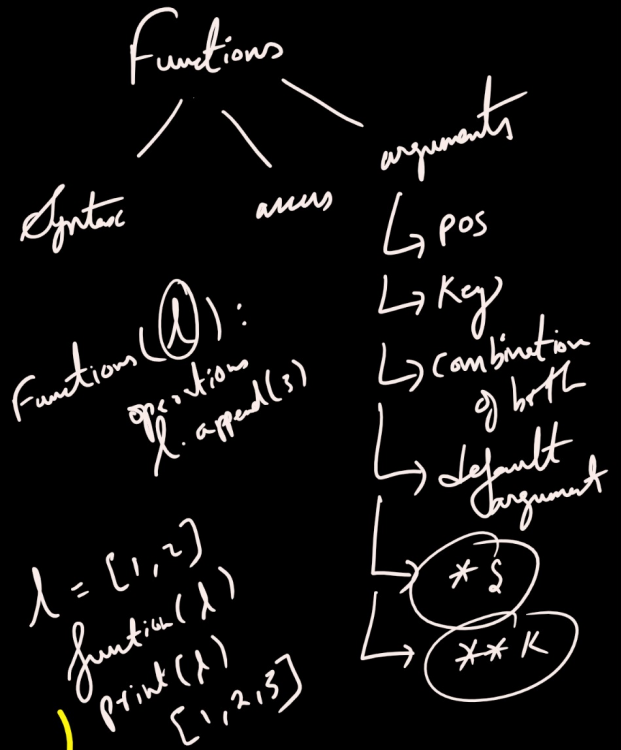 Functions
Syntax access arguments
pos
key
combination
of both
default
argument
*
**K
Functions(l):
operations
l.append(3)
l = [1,2]
function(l)
print(l)
[1,2,3]